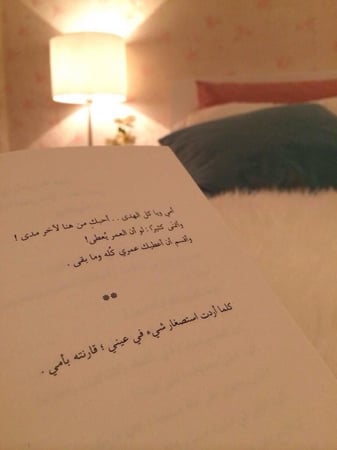 أمي ويا كل الهدى . . أحبكِ من هنا لآخر مدى !
وأتمنى كثيرًا : لو أن العمر يُعطى!
وأقسم أن أعطيك عمري كُلّه وما بقى .
**
كلما أردت استصغار شيء في عيني ؛ قارنته بأمي .